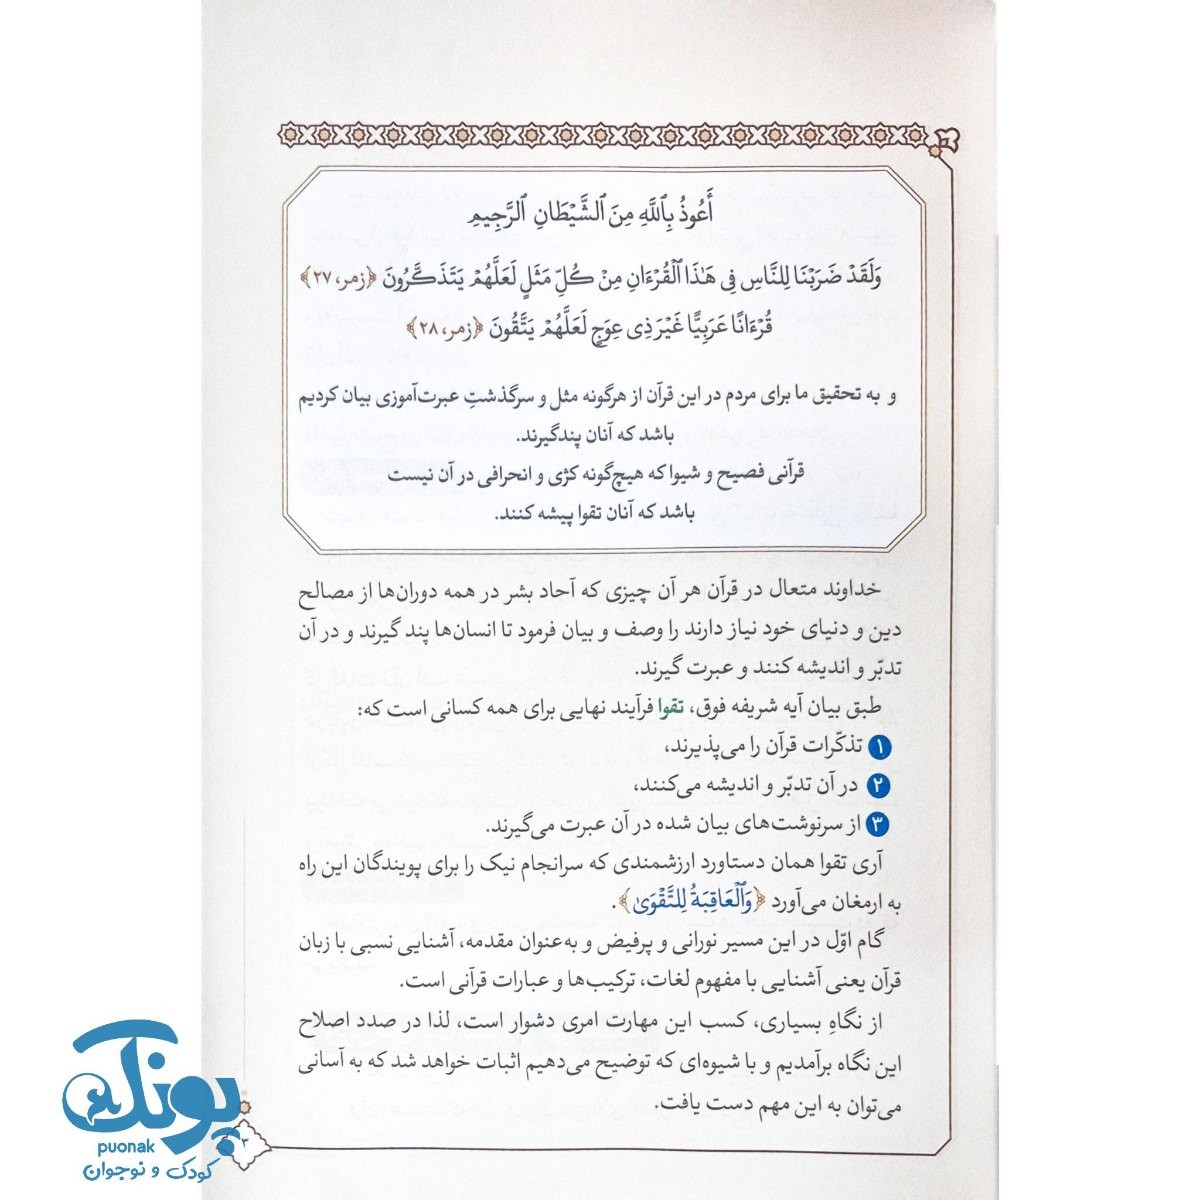 أَعُوذُ بِٱللَّهِ مِنَ ٱلشَّيْطَانِ ٱلرَّجِيمِ
وَلَقَدْ ضَرَبْنَا لِلنَّاسِ فِى هَٰذَا ٱلْقُرْءَانِ مِنْ كُلِّ مَثَلٍ لَعَلَّهُمْ يَتَذَكَّرُونَ ﴿زمر، ۲۷﴾
قُرْءَانًا عَرَبِيًّا غَيْرَ ذِى عِوَجٍ لَعَلَّهُمْ يَتَّقُونَ ﴿زمر، ۲۸﴾
و به تحقیق ما برای مردم در این قرآن از هرگونه مثل و سرگذشتِ عبرت‌آموزی بیان کردیم
باشد که آنان پندگیرند.
قرآنی فصیح و شیوا که هیچ‌گونه کژی و انحرافی در آن نیست
باشد که آنان تقوا پیشه کنند.
خداوند متعال در قرآن هر آن چیزی که آحاد بشر در همه دوران‌ها از مصالح
دین و دنیای خود نیاز دارند را وصف و بیان فرمود تا انسان‌ها پند گیرند و در آن
تدبّر و اندیشه کنند و عبرت گیرند.
طبق بیان آیه شریفه فوق، تقوا فرآیند نهایی برای همه کسانی است که:
۱ تذکّرات قرآن را می‌پذیرند،
۲ در آن تدبّر و اندیشه می‌کنند،
۳ از سرنوشت‌های بیان شده در آن عبرت می‌گیرند.
آری تقوا همان دستاورد ارزشمندی که سرانجام نیک را برای پویندگان این راه
به ارمغان می‌آورد ﴿وَٱلْعَاقِبَةُ لِلتَّقْوَىٰ﴾.
گام اوّل در این مسیر نورانی و پرفیض و به‌عنوان مقدمه، آشنایی نسبی با زبان
قرآن یعنی آشنایی با مفهوم لغات، ترکیب‌ها و عبارات قرآنی است.
از نگاهِ بسیاری، کسب این مهارت امری دشوار است، لذا در صدد اصلاح
این نگاه برآمدیم و با شیوه‌ای که توضیح می‌دهیم اثبات خواهد شد که به آسانی
می‌توان به این مهم دست یافت.
۲
پونک
puonak
کودک و نوجوان